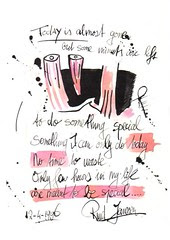 Today is almost gone
but some minutes are left
to do something special
something I can only do today
No time to waste
Only few hours in my life
are meant to be special
12-4-1996